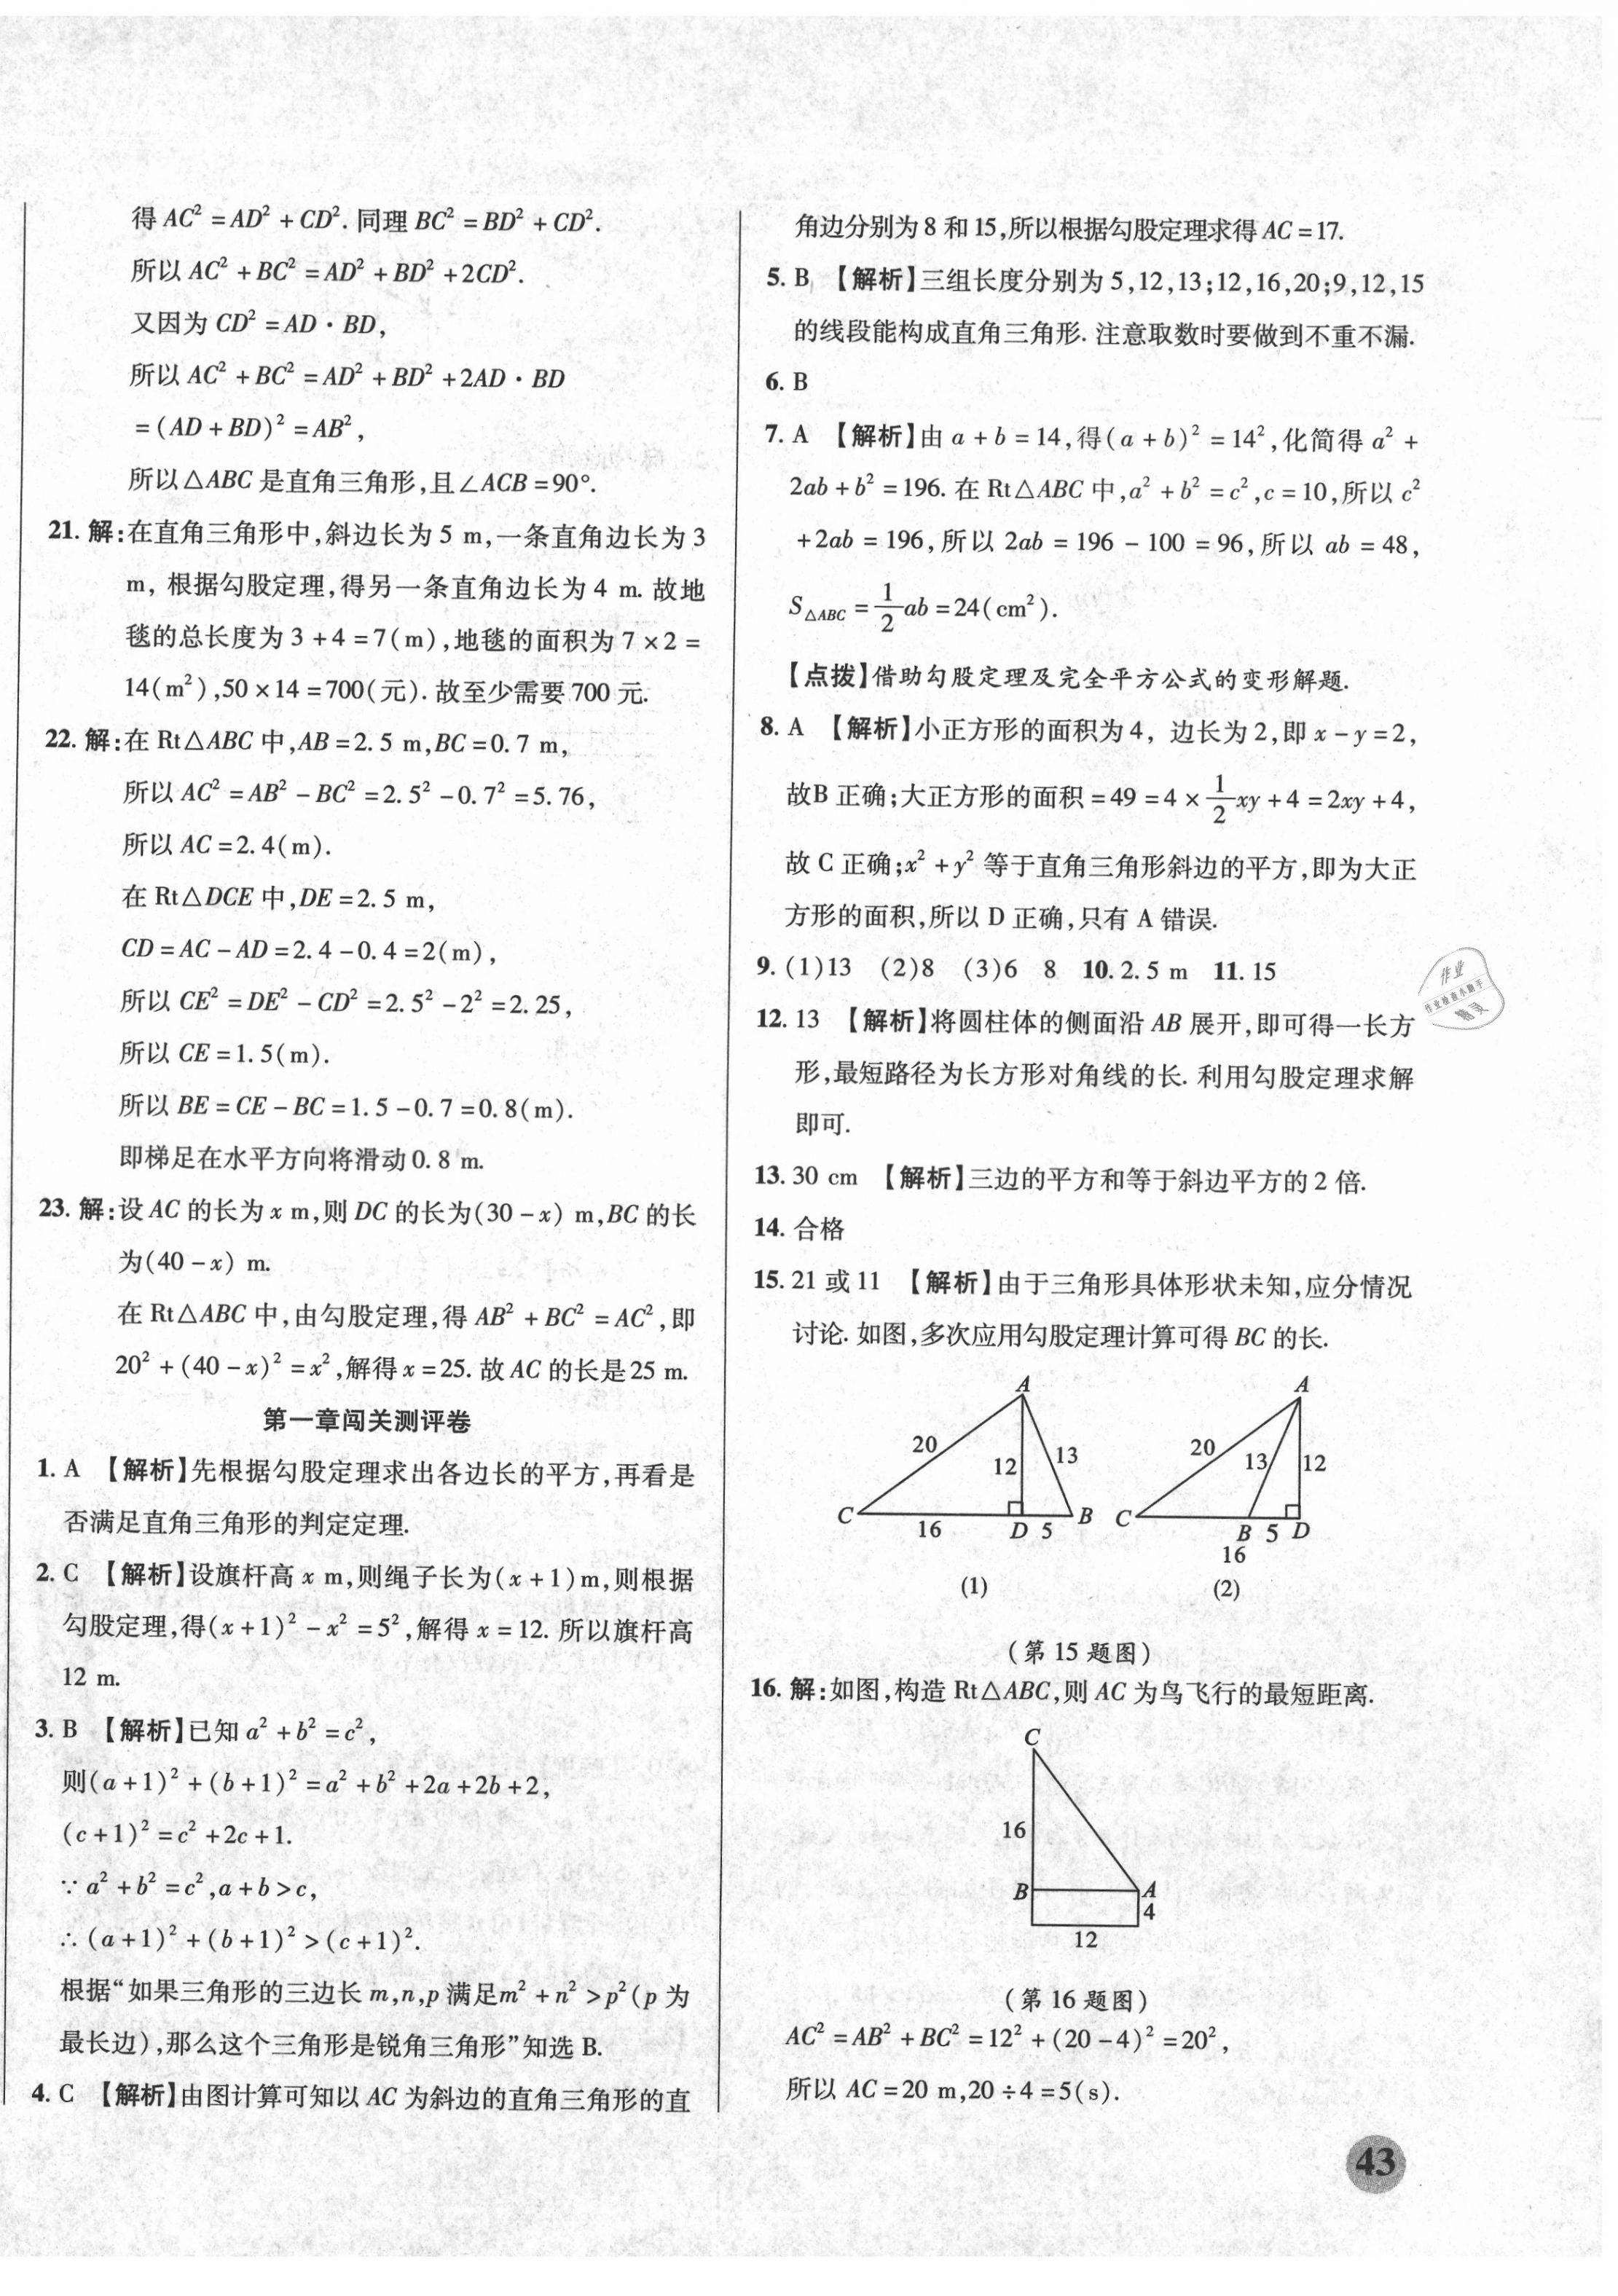 得 AC² = AD² + CD². 同理 BC² = BD² + CD².
所以 AC² + BC² = AD² + BD² + 2CD².
又因为 CD² = AD · BD,
所以 AC² + BC² = AD² + BD² + 2AD · BD
= (AD + BD)² = AB²,
所以△ABC 是直角三角形,且∠ACB = 90°.
21. 解:在直角三角形中,斜边长为 5 m,一条直角边长为 3
m, 根据勾股定理,得另一条直角边长为 4 m. 故地
毯的总长度为 3 + 4 = 7(m),地毯的面积为 7 × 2 =
14(m²),50 × 14 = 700(元). 故至少需要 700 元.
22. 解:在 Rt△ABC 中,AB = 2.5 m,BC = 0.7 m,
所以 AC² = AB² - BC² = 2.5² - 0.7² = 5.76,
所以 AC = 2.4(m).
在 Rt△DCE 中,DE = 2.5 m,
CD = AC - AD = 2.4 - 0.4 = 2(m),
所以 CE² = DE² - CD² = 2.5² - 2² = 2.25,
所以 CE = 1.5(m).
所以 BE = CE - BC = 1.5 - 0.7 = 0.8(m).
即梯足在水平方向将滑动 0.8 m.
23. 解:设 AC 的长为 x m,则 DC 的长为(30 - x) m,BC 的长
为(40 - x) m.
在 Rt△ABC 中,由勾股定理,得 AB² + BC² = AC²,即
20² + (40 - x)² = x²,解得 x = 25. 故 AC 的长是 25 m.
第一章闯关测评卷
1. A 【解析】先根据勾股定理求出各边长的平方,再看是
否满足直角三角形的判定定理.
2. C 【解析】设旗杆高 x m,则绳子长为(x + 1)m,则根据
勾股定理,得(x + 1)² - x² = 5²,解得 x = 12. 所以旗杆高
12 m.
3. B 【解析】已知 a² + b² = c²,
则(a + 1)² + (b + 1)² = a² + b² + 2a + 2b + 2,
(c + 1)² = c² + 2c + 1.
∵ a² + b² = c²,a + b > c,
∴ (a + 1)² + (b + 1)² > (c + 1)².
根据“如果三角形的三边长 m,n,p 满足m² + n² > p²(p 为
最长边),那么这个三角形是锐角三角形”知选 B.
4. C 【解析】由图计算可知以 AC 为斜边的直角三角形的直
角边分别为 8 和 15,所以根据勾股定理求得 AC = 17.
5. B 【解析】三组长度分别为 5,12,13;12,16,20;9,12,15
的线段能构成直角三角形. 注意取数时要做到不重不漏.
6. B
7. A 【解析】由 a + b = 14,得(a + b)² = 14²,化简得 a² +
2ab + b² = 196. 在 Rt△ABC 中,a² + b² = c²,c = 10,所以 c²
+ 2ab = 196,所以 2ab = 196 - 100 = 96,所以 ab = 48,
S△ABC = 1/2 ab = 24(cm²).
【点拨】借助勾股定理及完全平方公式的变形解题.
8. A 【解析】小正方形的面积为 4, 边长为 2,即 x - y = 2,
故B 正确;大正方形的面积 = 49 = 4 × 1/2 xy + 4 = 2xy + 4,
故 C 正确;x² + y² 等于直角三角形斜边的平方,即为大正
方形的面积,所以 D 正确,只有 A 错误.
9. (1)13 (2)8 (3)6 8 10. 2.5 m 11. 15
12. 13 【解析】将圆柱体的侧面沿 AB 展开,即可得一长方
形,最短路径为长方形对角线的长. 利用勾股定理求解
即可.
13. 30 cm 【解析】三边的平方和等于斜边平方的 2 倍.
14. 合格
15. 21 或 11 【解析】由于三角形具体形状未知,应分情况
讨论. 如图,多次应用勾股定理计算可得 BC 的长.
A A
20 12 13 20 13 12
C 16 D 5 B C B 5 D
16
(1) (2)
(第 15 题图)
16. 解:如图,构造 Rt△ABC,则 AC 为鸟飞行的最短距离.
C
16
B A
4
12
(第 16 题图)
AC² = AB² + BC² = 12² + (20 - 4)² = 20²,
所以 AC = 20 m,20 ÷ 4 = 5(s).
作业
作业检查小助手
精灵
43